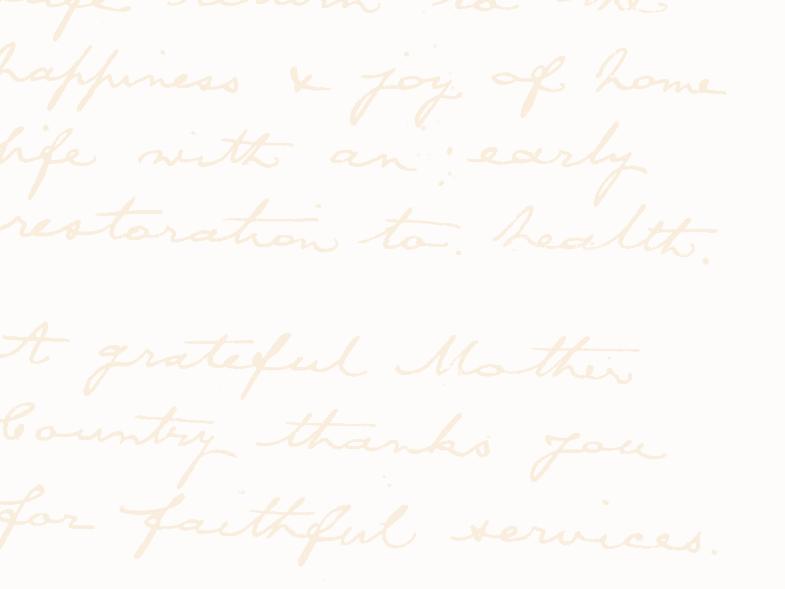 safe return to the
happiness & joy of home
life with an early
restoration to health.
A grateful Mother
Country thanks you
for faithful services.